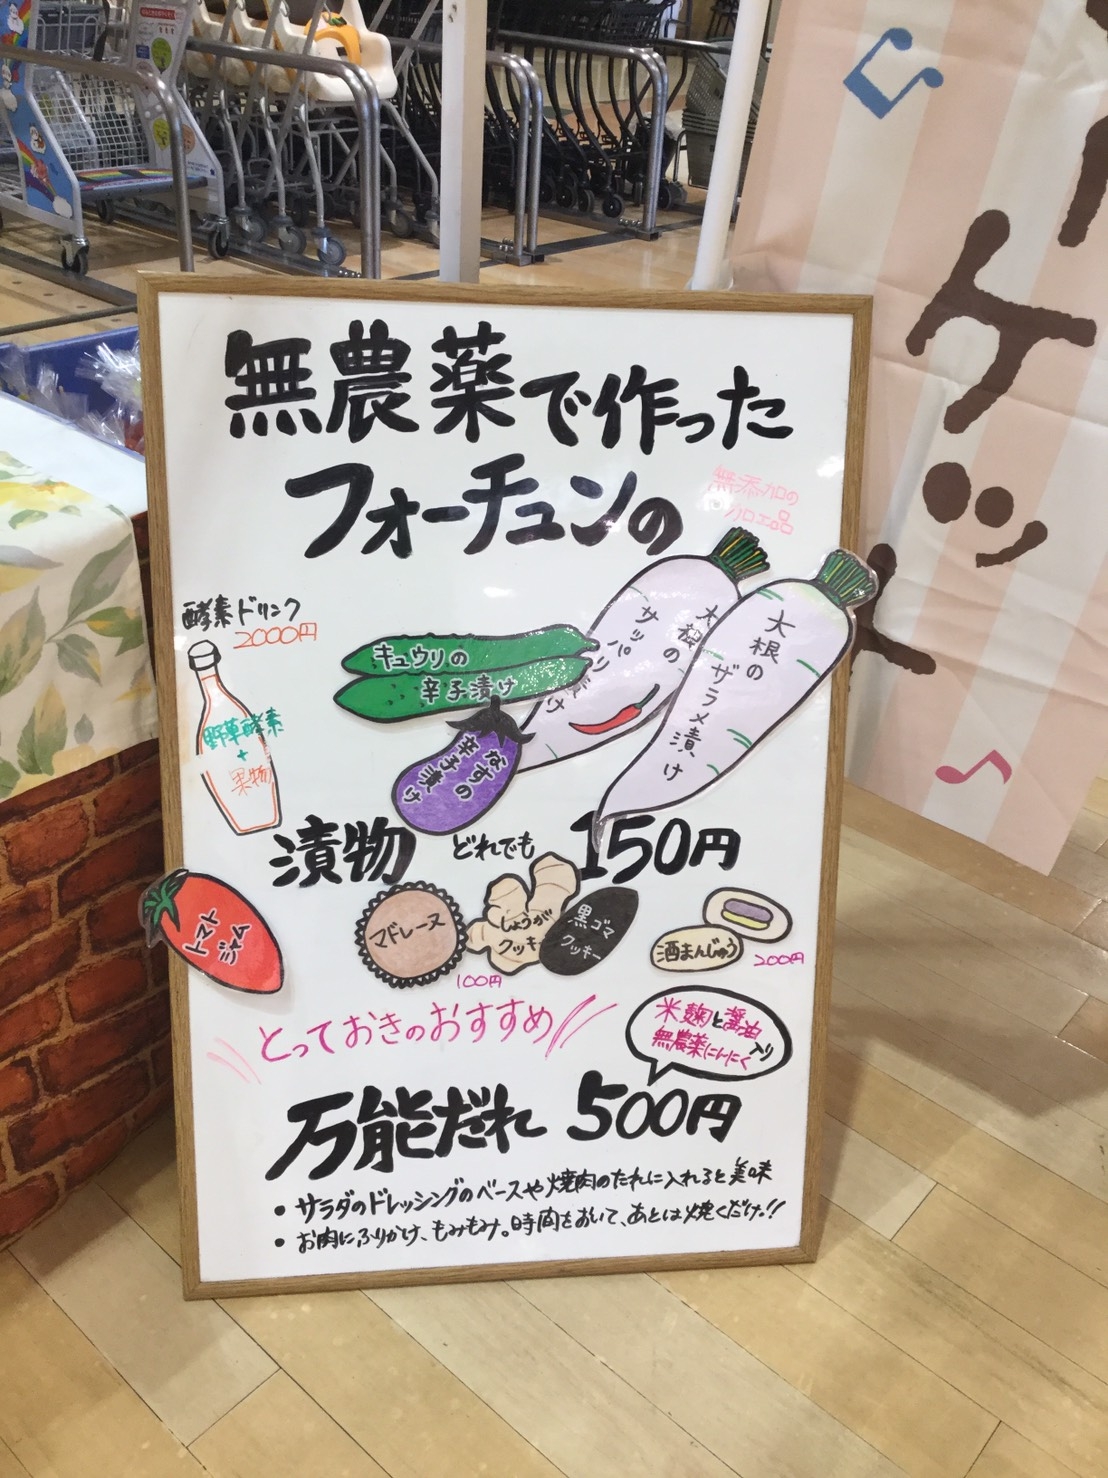 無農薬で作った
フォーチュンの
無添加の
加工品
酵素ドリンク
2000円
野草酵素
+
果物
キュウリの
辛子漬け
なすの
辛子漬け
大根の
サッパリ漬け
大根の
ザラメ漬け
漬物 どれでも 150円
トマト
ジャム
マドレーヌ
しょうが
クッキー
黒ゴマ
クッキー
100円
酒まんじゅう
200円
とっておきのおすすめ
米麹と醤油
無農薬にんにく入り
万能だれ 500円
・サラダのドレッシングのベースや焼肉のたれに入れると美味
・お肉にふりかけ、もみもみ。時間をおいて、あとは焼くだけ!!
ーケット